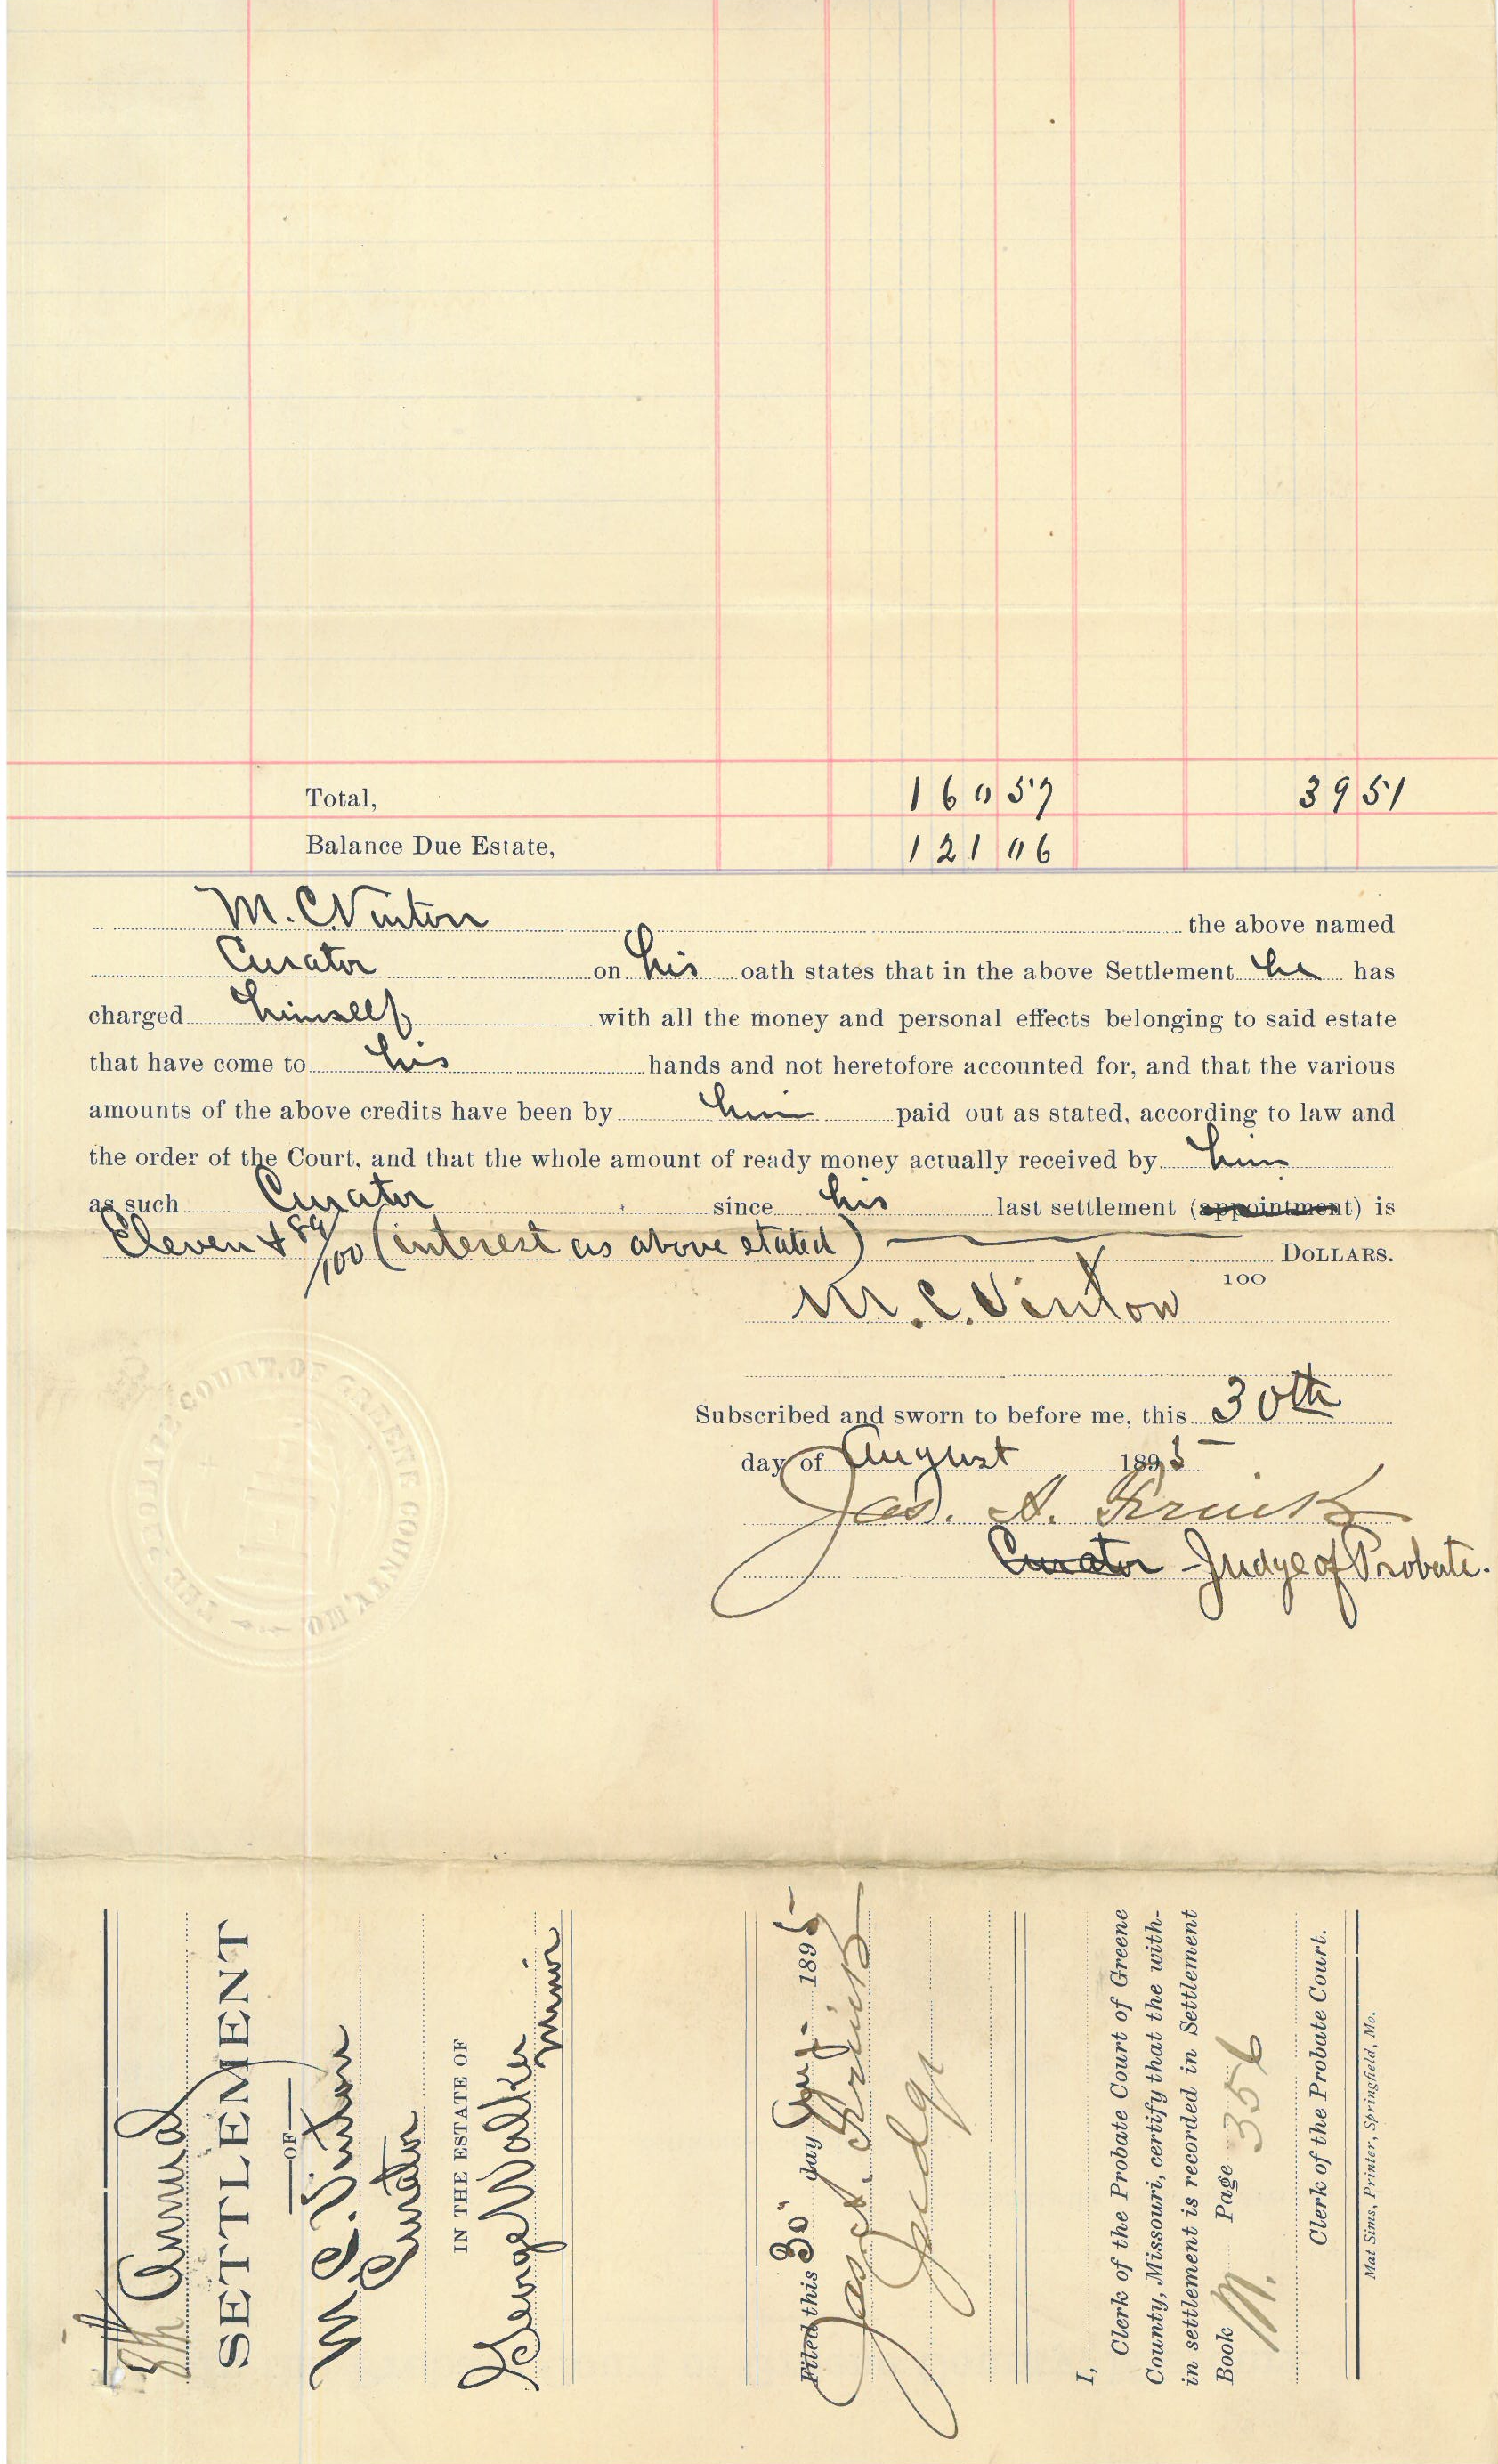 Total, 160 57 39 51
Balance Due Estate, 121 06
M. C. Vinton the above named
Curator on his oath states that in the above Settlement he has
charged himself with all the money and personal effects belonging to said estate
that have come to his hands and not heretofore accounted for, and that the various
amounts of the above credits have been by him paid out as stated, according to law and
the order of the Court, and that the whole amount of ready money actually received by him
as such Curator since his last settlement (appointment) is
Eleven & 89/100 (interest as above stated) DOLLARS.
100
M. C. Vinton
Subscribed and sworn to before me, this 30th
day of August 1895
Jas. A.
Curator - Judge of Probate.
THE PROBATE COURT OF GREENE COUNTY, MO.
Annual
SETTLEMENT
OF
M. C. Vinton
Curator
IN THE ESTATE OF
George Walker
minor
Filed this 30" day Aug. 1895
Jas. A.
Judge
I,
Clerk of the Probate Court of Greene
County, Missouri, certify that the with-
in settlement is recorded in Settlement
Book M. Page 356
Clerk of the Probate Court.
Mat Sims, Printer, Springfield, Mo.